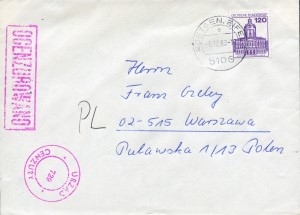 OCENZUROWANO
DEUTSCHE BUNDESPOST
120
5106
Herrn
Franz
PL
02-515 Warszawa
Puławska 1/13 Polen
URZĄD CENZURY